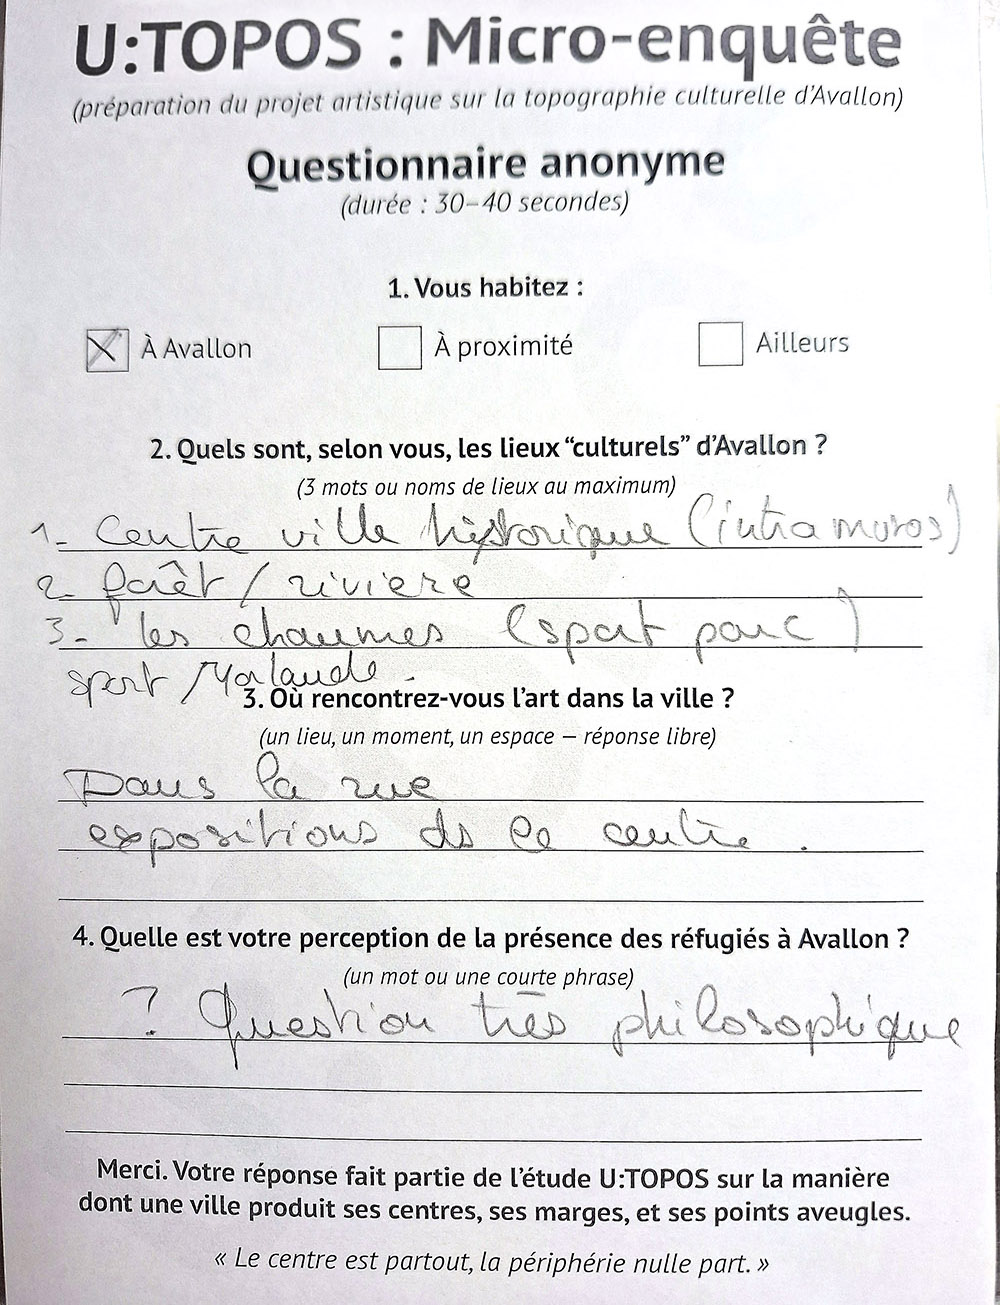 U:TOPOS : Micro-enquête
(préparation du projet artistique sur la topographie culturelle d'Avallon)
Questionnaire anonyme
(durée : 30–40 secondes)
1. Vous habitez :
À Avallon À proximité Ailleurs
2. Quels sont, selon vous, les lieux “culturels” d'Avallon ?
(3 mots ou noms de lieux au maximum)
1- Centre ville historique (intra muros)
2- forêt / riviere
3- les chaumes (sport parc)
sport /
3. Où rencontrez-vous l'art dans la ville ?
(un lieu, un moment, un espace – réponse libre)
Dans la rue
expositions ds le centre .
4. Quelle est votre perception de la présence des réfugiés à Avallon ?
(un mot ou une courte phrase)
? Question très philosophique
Merci. Votre réponse fait partie de l'étude U:TOPOS sur la manière
dont une ville produit ses centres, ses marges, et ses points aveugles.
« Le centre est partout, la périphérie nulle part. »